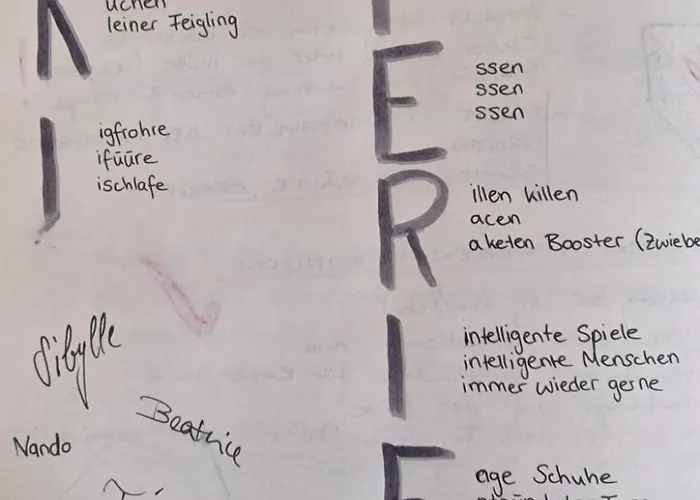 uchen
leiner Feigling
I
igfrohre
ifüüre
ischlafe
Sibylle
Beatrice
Nando
E
ssen
ssen
ssen
R
illen killen
acen
aketen Booster (Zwiebe
I
intelligente Spiele
intelligente Menschen
immer wieder gerne
age Schuhe